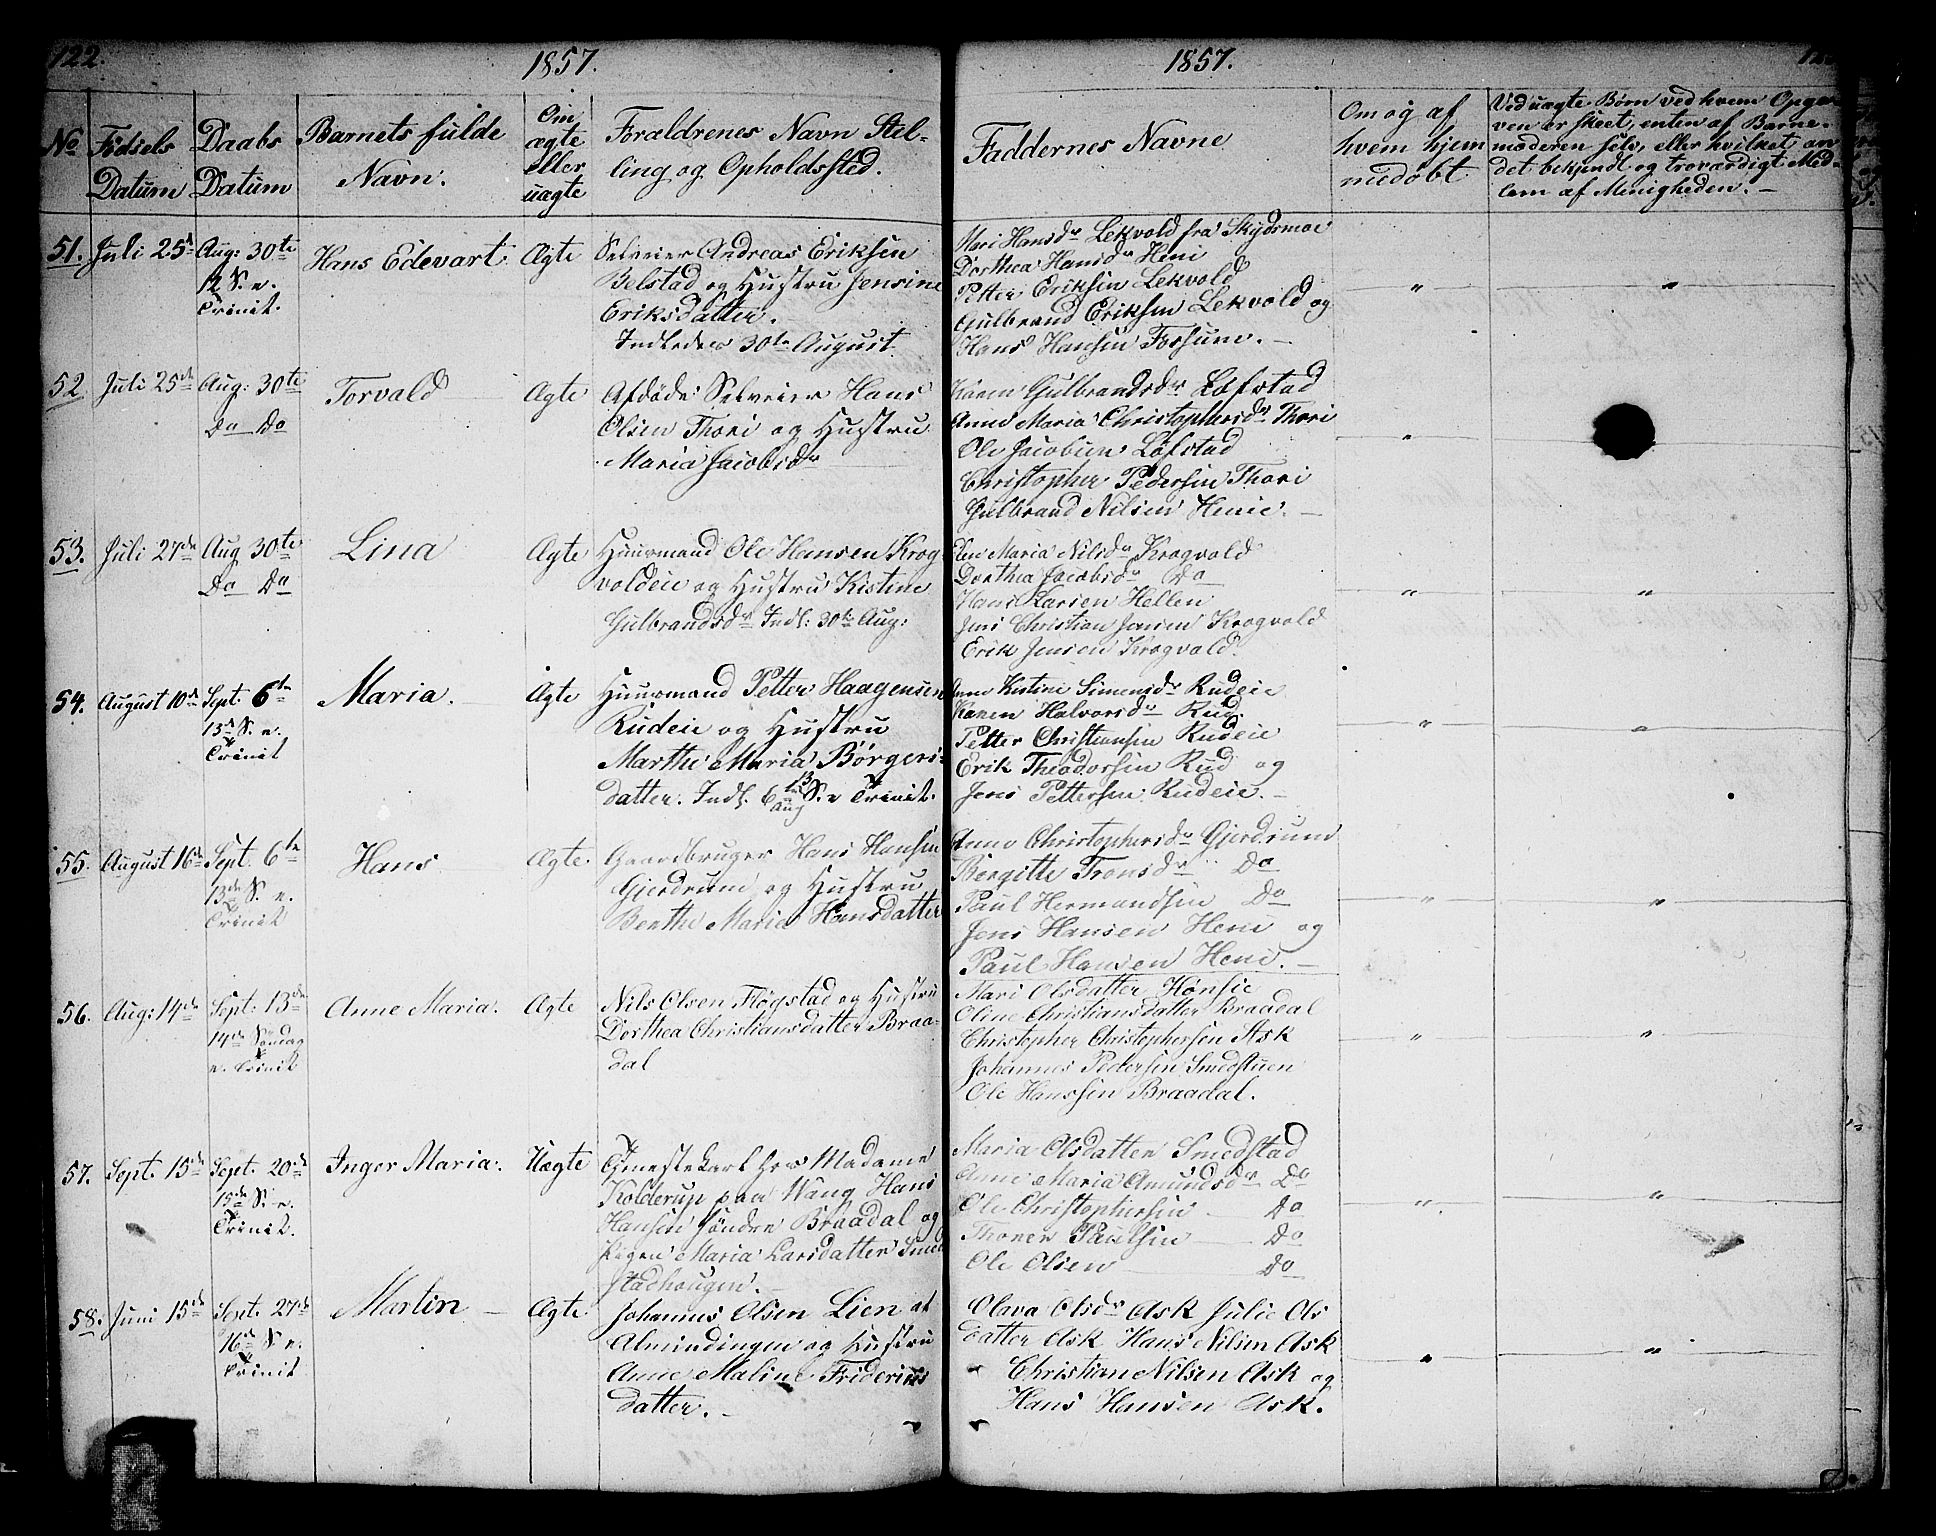 122.
1857.
No
Födsels
Datum
Daabs
Datum
Barnets fulde
Navn.
Om
ægte
eller
uægte
Forældrenes Navn Stil-
ling og Opholdssted.
51.
Juli 25d
Aug: 30te
12 S. e.
Trinit.
Hans Edevart
Ægte
Selveier Andreas Eriksen
Belstad og Hustru Jensine
Eriksdatter.
30te August.
52.
Juli 25de
Aug: 30te
Do Do
Torvald
Ægte
Afdøde Selveier Hans
Olsen Thori og Hustru
Maria Jacobsdr
53.
Juli 27de
Aug 30te
Do Do
Lina
Ægte
Huusmand Ole Hansen Krog
voldeie og Hustru Kistine
Gulbrandsdr Indl: 30te Aug:
54.
August 10de
Sept. 6te
13d S. e.
Trinit
Maria.
Ægte
Huusmand Petter Haagensen
Rudeie og Hustru
Marthe Maria Börgers-
datter. Indl. 6 Aug 13 S. e Trinit.
55.
August 16de
Sept. 6te
13de S. e.
Trinit
Hans
Ægte
Gaardbruger Hans Hansen
Gjerdrum og Hustru
Berthe Maria Hansdatter
56.
Aug: 14de
Sept: 13de
14de Søndag
e. Trinit
Anne Maria.
Ægte
Nils Olsen Flögstad og Hustru
Dorthea Christiansdatter Braa-
dal
57.
Sept. 15de
Sept. 20de
15de S. e.
Trinit.
Inger Maria.
Uægte
Tjenestekarl hos Madame
Kolderup paa Wang Hans
Hansen söndre Braadal og
Pigen Maria Larsdatter Smed
stadhaugen.
58.
Juni 15de
Sept. 27de
16de S e.
Trinit
Martin
Ægte
Johannes Olsen Lien at
Almindingen og Hustru
Anne Maline Frideriks
datter.
1857.
Faddernes Navne
Om og af
hvem hjem
medøbt
Ved uægte Børn ved hvem Opga-
ven er skeet, enten af Barne-
moderen selv, eller hvilket an
det bekjendt og troværdigt Med-
lem af Menigheden.
Mari Hansdr Lekvold fra Skydsmoe
Dorthea Hansdr Heni
Petter Eriksen Lekvold
Gulbrand Eriksen Lekvold og
Hans Hansen Fossum.
" "
Karen Gulbrandsdr Löfstad
Anne Maria Christophersdr Thori
Ole Jacobsen Löfstad
Christopher Pedersen Thori
Gulbrand Nilsen Henie.
"
Maria Nilsdr Krogvold
Dorthea Jacobsdr Do
Hans Larsen Hellen
Jens Christian Jensen Krogvold
Erik Jensen Krogvold.
" "
Anne Kistine Simensdr Rudeie
Karen Halvorsdr Rud.
Petter Christiansen Rudeie
Erik Theodorsen Rud og
Jens Pettersen Rudeie.
" "
Anne Christophersdr Gjerdrum
Bergitte Tronsdr Do
Paul Hermandsen Do
Jens Hansen Heni og
Paul Hansen Heni.
" "
Mari Olsdatter Hönsie
Oline Christiansdatter Braadal
Christopher Christophersen Ask
Johannes Pedersen Smedstuen
Ole Hanssen Braadal.
" "
Maria Olsdatter Smedstad
Anne Maria Amundsdr Do
Ole Christophersen Do
Thorer Paulsen Do
Ole Olsen Do
" "
Olava Olsdr Ask Julie Ols
datter Ask Hans Nilsen Ask
Christian Nilsen Ask og
Hans Hansen Ask.
" "